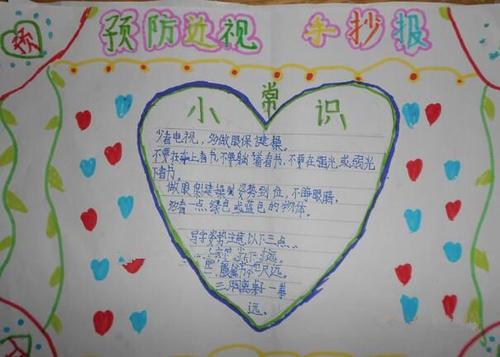 预
预防近视 手抄报
小常识
少看电视，多做眼保健操。
不要在床上看书，不要躺着看书，不要在强光或弱光
下看书。
做眼保健操姿势到位，不
多看一点绿色或蓝色的物体。
写字姿势注意以下三点
一
二、眼离书一尺远。
三、胸离桌子一拳
远。